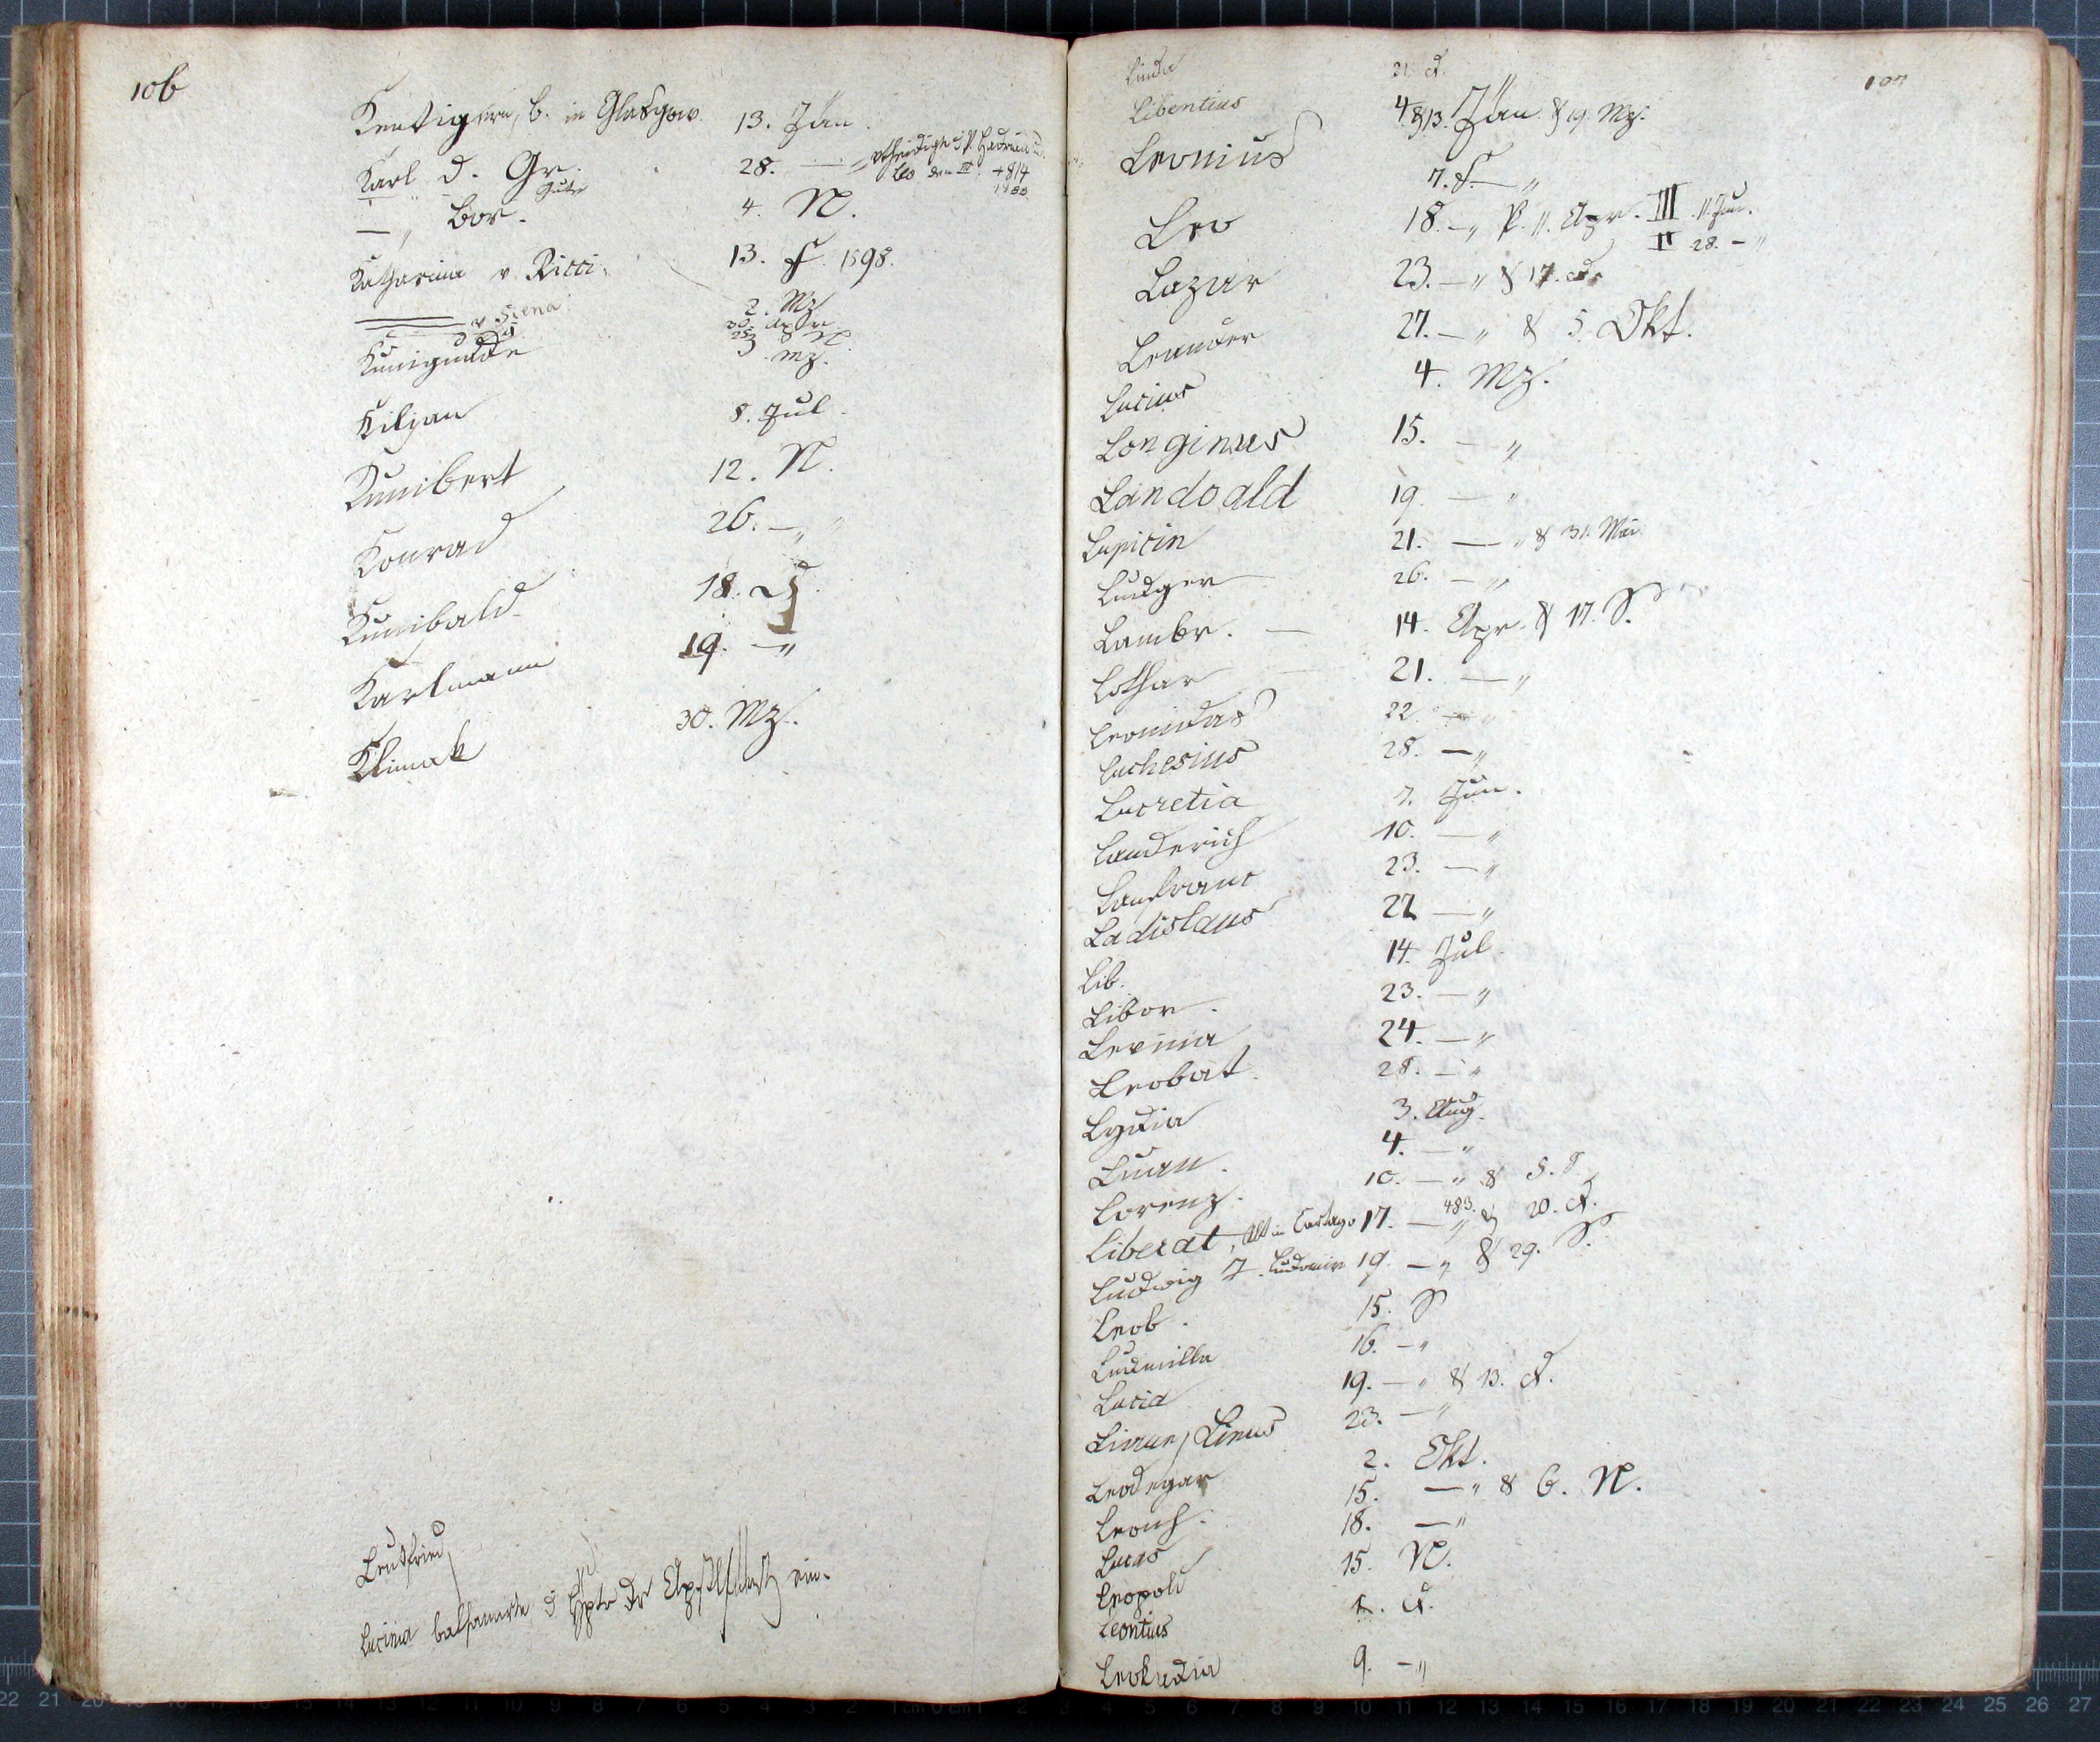 106
Kentigern, B. in Glasgow. 13. Jän.
Karl d. Gr. 28. — „ vtheidigte d. P. Hadrian u.
Leo den III. +814
— „ Gute
Bor. 4. N.
Katharina v. Ricci. 13. F. 1598.
——— v Siena 30. Apr.
Kunigunde 3. Mz.
Kilian 8. Jul.
Kunibert 12. N.
Konrad 26. — „
Kunibald 18. D.
Karlmann 19. — „
Klimak 30. Mz.
Leutfried
Lucina balsamirte d ein.
107
Linda 21. d.
Libentius 4.
Leonius & 13. Jän. & 19. Mz.
7. F. — „
Leo 18. — „ P. 11. Apr. III. 11. Jun.
II 28. — „
Lazar 23. — „ & 17. d.
Leander 27. — „ & 5. Okt.
Lucius 4. Mz.
Longinus 15. — „
Landoald 19. — „
Lupicin 21. — „ & 31. Mai
Ludger 26. — „
Lambr. — 14. Apr. & 17. S.
Lothar 21. — „
Leonidas 22. — „
Luchesius 28. — „
Lucretia 7. Jun.
Landerich 10. — „
Lanfranc 23. — „
Ladislaus 27 — „
Lib. 14. Jul.
Libor. 23. — „
Levina 24. — „
Leobat 28. — „
Lydia 3. Aug.
Luan. 4. — „
Lorenz. 10. — „ & 5. S
Liberat, Abt in Cartago 17. — „ 483. & 20. d.
Ludwig J. Ludomir 19. — „ & 29. S.
Leob. 15. S
Ludmilla 16. — „
Lucia 19. — „ & 13. d.
Livian, Linus 23. — „
Leodegar 2. Okt.
Leonh. 15. — „ & 6. N.
Lucas 18. — „
Leopold 15. N.
Leontius 1. d.
Leokadia 9. — „